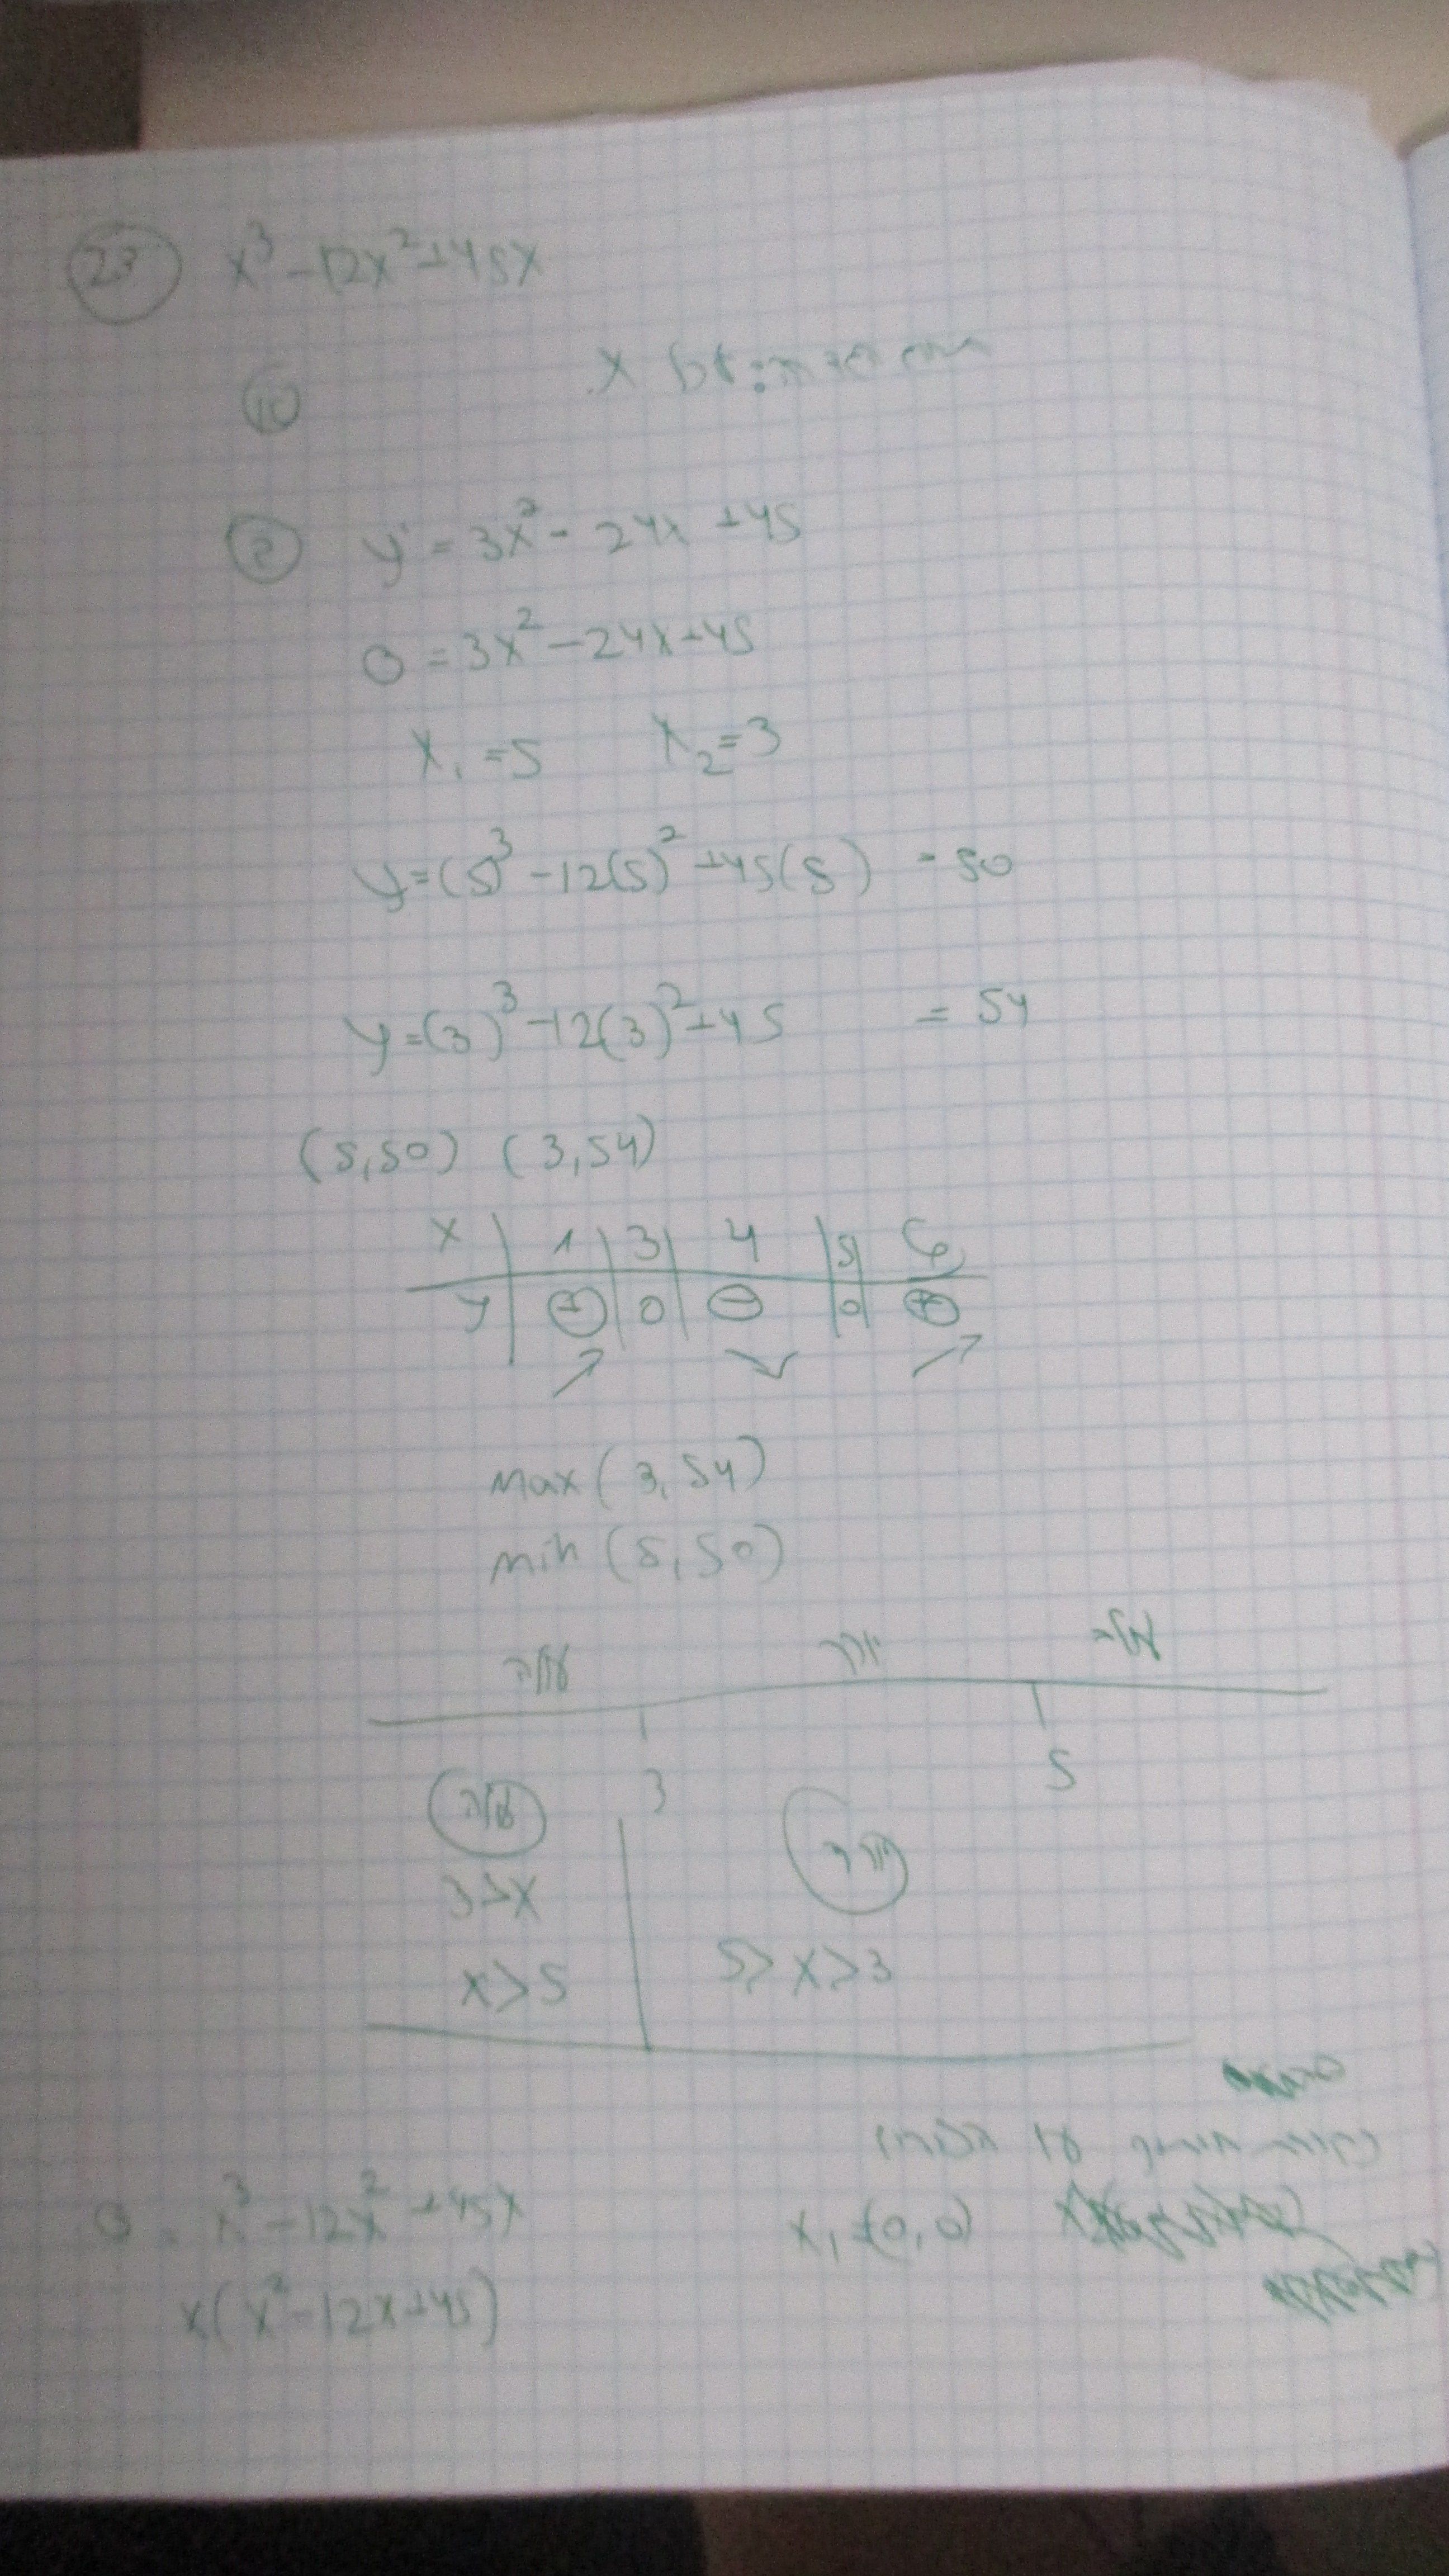 23 x³-12x²+45x
תחום הגדרה: כל x
y' = 3x² - 24x + 45
0 = 3x² - 24x + 45
x₁ = 5 x₂ = 3
y = (5)³ - 12(5)² + 45(5) = 50
y = (3)³ - 12(3)² + 45 = 54
(5,50) (3,54)
x | 1 | 3 | 4 | 5 | 6
y' | + | 0 | - | 0 | +
↗ ↘ ↗
max (3,54)
min (5,50)
עולה יורד עולה
3 5
עולה יורד
3>x
x>5 5>x>3
נקודות חיתוך עם
0 = x³ - 12x² + 45x x₁ = (0,0)
x(x² - 12x + 45)